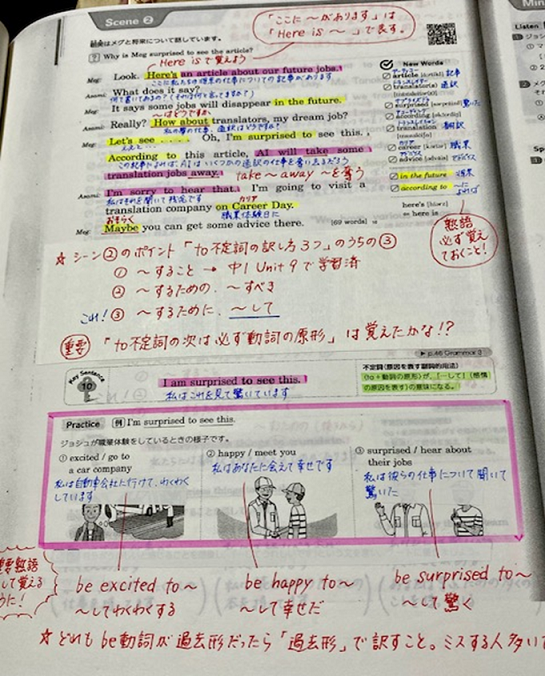 Scene ②
「ここに 〜があります」は
「Here is 〜」で表す。
朝美はメグと将来について話しています。
Why is Meg surprised to see the article?
Here isで覚えよう
Meg: Look. Here's an article about our future jobs.
ここに私たちの将来の仕事についての記事があります
Asami: What does it say?
Meg: It says some jobs will disappear in the future.
〜はどうですか
Asami: Really? How about translators, my dream job?
私の夢の仕事、通訳はどうですか?
Meg: Let's see .... Oh, I'm surprised to see this.
According to this article, AI will take some
translation jobs away. take〜away 〜を奪う
Asami: I'm sorry to hear that. I'm going to visit a
私はそれを聞いて残念です
キャリア
translation company on Career Day.
職業体験日に
おそらく
Meg: Maybe you can get some advice there.
[69 words]
New Words
article 記事
translator(s) 通訳
surprised 驚いた
according
translation 翻訳
career 職業
advice
in the future 将来
according to 〜によれば
here's
← here is
熟語
必ず覚え
ておくこと!
☆ シーン②のポイント「to不定詞の訳し方3つ」のうちの③
① 〜すること → 中1 Unit 9で学習済
② 〜するための、〜すべき
これ! ③ 〜するために、〜して
重要 「to不定詞の次は必ず動詞の原形」は覚えたかな!?
Key Sentence
10
I am surprised to see this.
私はこれを見て驚いています
不定詞〔原因を表す副詞的用法〕
〈to+動詞の原形〉が、「…して」〔感情
の原因を表す〕の意味になる。
Practice 例 I'm surprised to see this.
ジョシュが職業体験をしているときの様子です。
① excited / go to
a car company
私は自動車会社に行けて、わくわく
しています
② happy / meet you
私はあなたに会えて幸せです
③ surprised / hear about
their jobs
私は彼らの仕事について聞いて
驚いた
be excited to〜
〜してわくわくする
be happy to〜
〜して幸せだ
be surprised to〜
〜して驚く
重要熟語
して覚える
うに!
☆ どれも be動詞が過去形だったら「過去形」で訳すこと。ミスする人多い